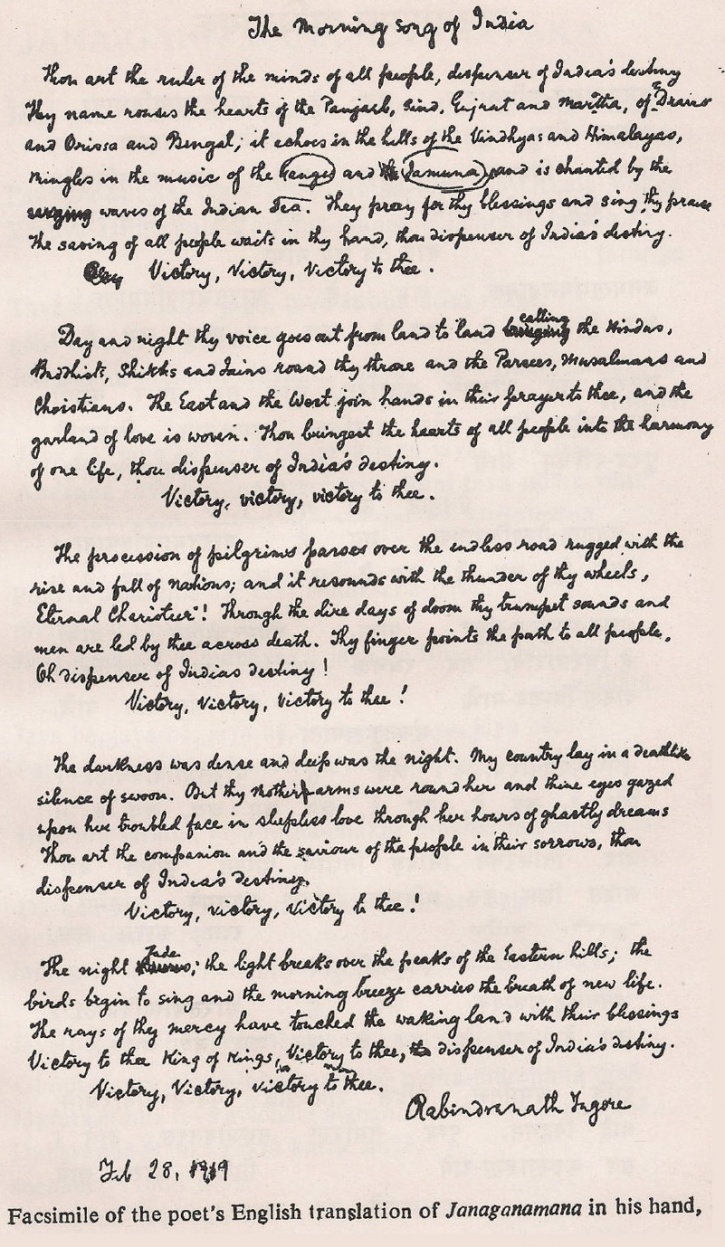 The Morning song of India
Thou art the ruler of the minds of all people, dispenser of India's destiny
Thy name rouses the hearts of the Panjaub, Sind, Gujrat and Maratha, of Dravid
and Orissa and Bengal; it echoes in the hills of the Vindhyas and Himalayas,
mingles in the music of the Ganges and the Jamuna and is chanted by the
waves of the Indian Sea. They pray for thy blessings and sing thy praise
The saving of all people waits in thy hand, thou dispenser of India's destiny.
Victory, Victory, Victory to thee.
calling
Day and night thy voice goes out from land to land the Hindus,
Buddhists, Shikhs and Jains round thy throne and the Parsees, Musalmans and
Christians. The East and the West join hands in their prayer to thee, and the
garland of love is woven. Thou bringest the hearts of all people into the harmony
of one life, thou dispenser of India's destiny.
Victory, victory, victory to thee.
The procession of pilgrims passes over the endless road rugged with the
rise and fall of nations; and it resounds with the thunder of thy wheels,
Eternal Charioteer! Through the dire days of doom thy trumpet sounds and
men are led by thee across death. Thy finger points the path to all people,
Oh dispenser of Indias destiny!
Victory, Victory, Victory to thee!
The darkness was dense and deep was the night. My country lay in a deathlike
silence of swoon. But thy Mother arms were round her and thine eyes gazed
upon her troubled face in sleepless love through her hours of ghastly dreams
Thou art the companion and the saviour of the people in their sorrows, thou
dispenser of India's destiny.
Victory, victory, Victory to thee!
fade
The night ; the light breaks over the peaks of the Eastern hills; the
birds begin to sing and the morning breeze carries the breath of new life.
The rays of they mercy have touched the waking land with their blessings
Victory to thee King of Kings, Victory to thee, dispenser of India's destiny.
Victory, Victory, victory to thee.
Rabindranath Tagore
Feb 28, 1919
Facsimile of the poet's English translation of Janaganamana in his hand,